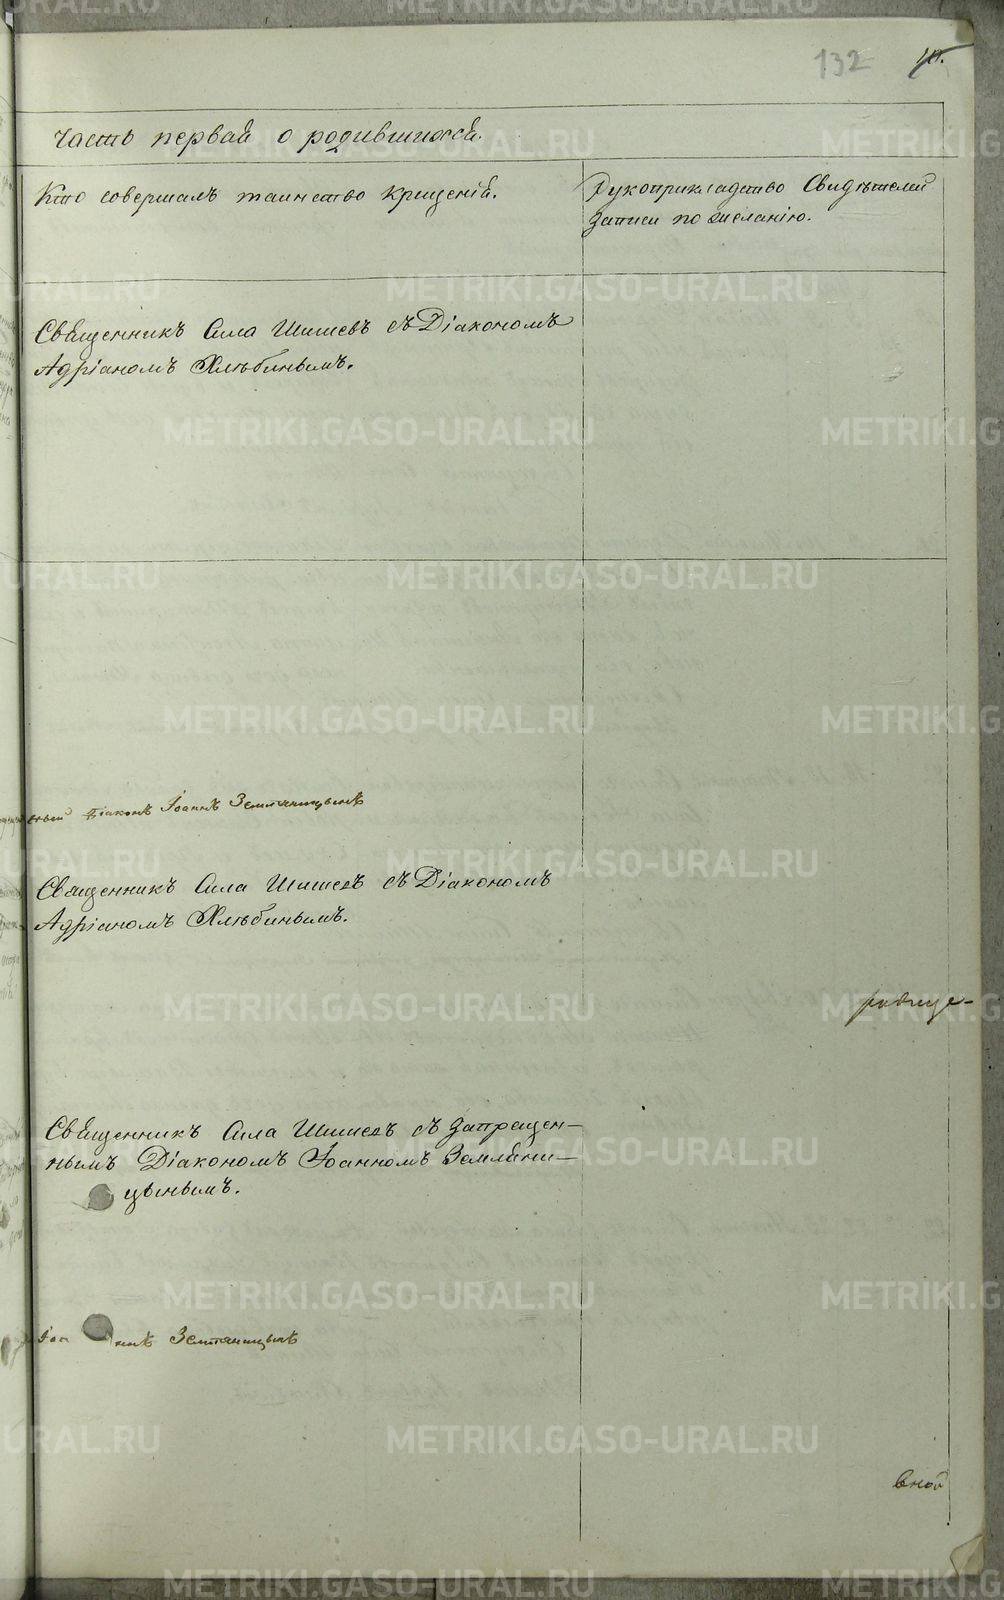 132
10.
Часть первая о родившихся.
Кто совершалъ таинство крещенія.
Рукоприкладство Свидѣтелей
записи по желанію.
Священникъ Сила Шишевъ съ Діакономъ
Адріаномъ Хлѣбинымъ.
Діаконъ Іоаннъ Земляницынъ
Священникъ Сила Шишевъ съ Діакономъ
Адріаномъ Хлѣбинымъ.
Священникъ Сила Шишевъ съ запрещен-
нымъ Діакономъ Іоанномъ Земляни-
цынымъ.
Земляницынъ
вной
METRIKI.GASO-URAL.RU